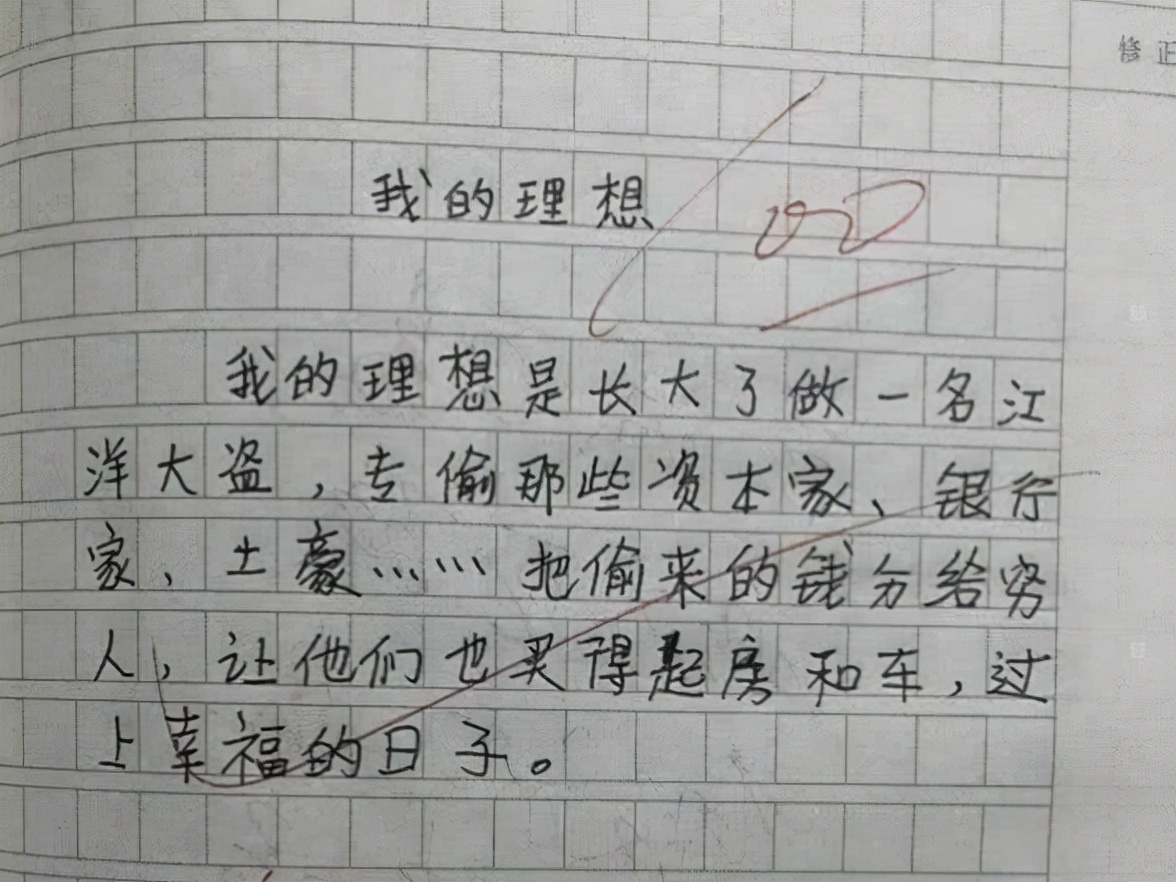 修正
我的理想
我的理想是长大了做一名江
洋大盗，专偷那些资本家、银行
家、土豪……把偷来的钱分给穷
人，让他们也买得起房和车，过
上幸福的日子。